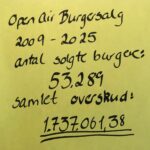 Open Air Burgersalg
2009 - 2025
antal solgte burgere:
53.289
samlet overskud:
1.737.061,38